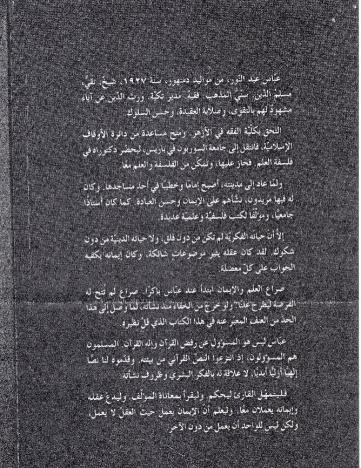 عبّاس عبد النّور، من مواليد دمنهور، سنة ١٩٢٧. شيخ، تقيّ،
مسلم الدّين، سنّي المذهب، فقيه، مدير تكيّة. ورث الدين عن آباء
مشهود لهم بالتقوى، وصلابة العقيدة، وحسن السلوك.
التحق بكلّية الفقه في الأزهر. ومنح مساعدة من دائرة الأوقاف
الإسلاميّة، فانتقل إلى جامعة السوربون في باريس، ليحضر دكتوراه في
فلسفة العلم. فحاز عليها، وتمكّن من الفلسفة والعلم معًا.
ولمّا عاد إلى مدينته، أصبح إمامًا وخطيبًا في أحد مساجدها. وكان
له فيها مريدون، نشّأهم على الإيمان وحسن العبادة. كما كان أستاذًا
جامعيًا، ومؤلّفًا لكتب فلسفيّة وعلمية عديدة.
إلاّ أن حياته الفكريّة لم تكن من دون قلق، ولا حياته الدينيّة من دون
شكوك. لقد كان عقله يثير موضوعات شائكة، وكان إيمانه يكفيه
الجواب على كلّ معضلة.
صراع العلم والإيمان ابتدأ عند عبّاس باكرًا. صراع لم تتح له
الفرصة ليطرح علنًا. ولو خرج من الخفاء منذ نشأته، لما وصل إلى هذا
الحدّ من العنف المعبّر عنه في هذا الكتاب الذي قلّ نظيره.
عبّاس ليس هو المسؤول عن رفض القرآن وإله القرآن. المسلمون
هم المسؤولون، إذ انتزعوا النصّ القرآني من بيئته، وقدّموه لنا نصًا
إلهيًا أزليًا أبديًا، لا علاقة له بالفكر البشري وظروف نشأته.
فليتمهّل القارئ ليحكم. وليقرأ بمعاناة المؤلّف. وليدع عقله
وإيمانه يعملان معًا. وليعلم أن الإيمان يعمل حيث العقل لا يعمل،
ولكن ليس للواحد أن يعمل من دون الآخر.